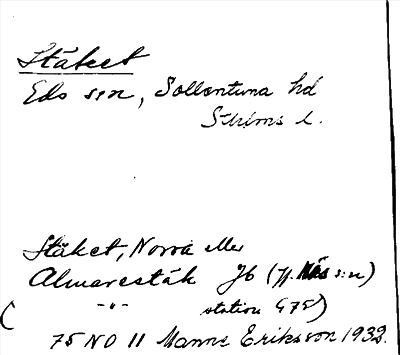 Stäket
Eds sn, Sollentuna hd
Sthlms l.
Stäket, Norra eller
Almarestäk Jb (Jf. Näs s:n)
( -"- station G75)
75 NO 11 Manne Eriksson 1932.